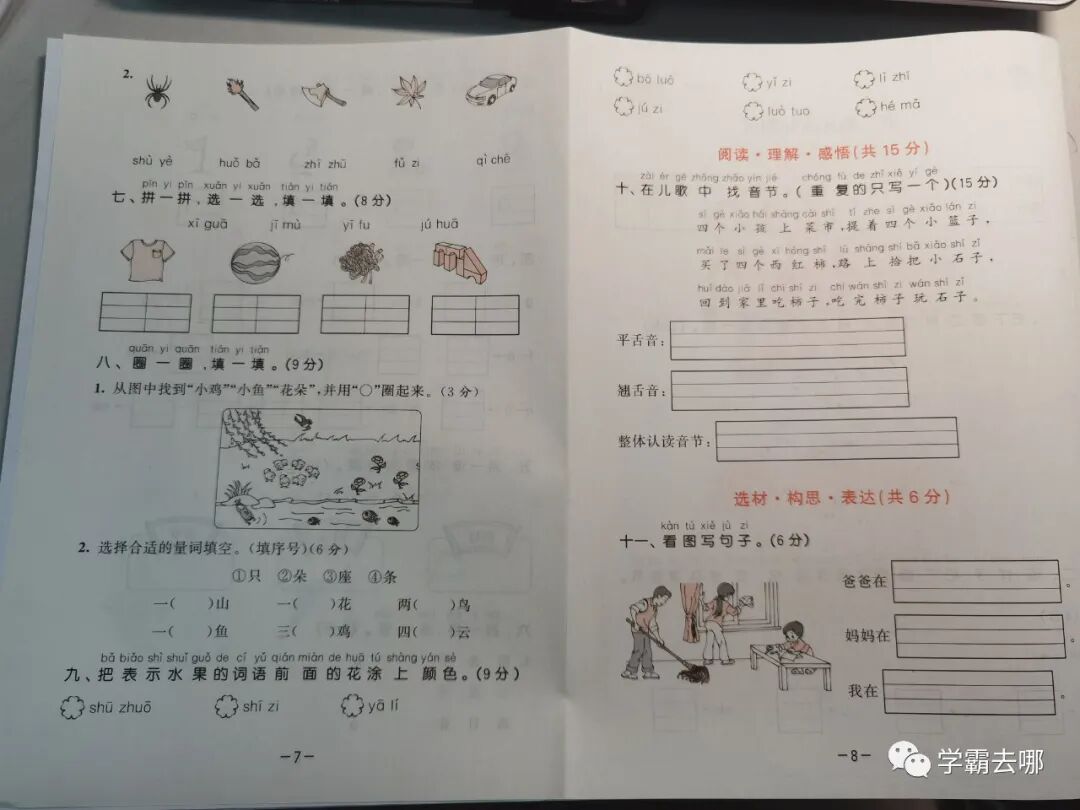 2.
shù yè huǒ bǎ zhī zhū fǔ zi qì chē
pīn yi pīn xuǎn yi xuǎn tián yi tián
七、拼一拼,选一选,填一填。(8分)
xī guā jī mù yī fu jú huā
quān yi quān tián yi tián
八、圈一圈,填一填。(9分)
1. 从图中找到“小鸡”“小鱼”“花朵”,并用“○”圈起来。(3分)
2. 选择合适的量词填空。(填序号)(6分)
①只 ②朵 ③座 ④条
一( )山 一( )花 两( )鸟
一( )鱼 三( )鸡 四( )云
bǎ biǎo shì shuǐ guǒ de cí yǔ qián miàn de huā tú shàng yán sè
九、把表示水果的词语前面的花涂上颜色。(9分)
shū zhuō shī zi yā lí
—7—
bō luó yǐ zi lì zhī
jú zi luò tuo hé mǎ
阅读·理解·感悟(共15分)
zài ér gē zhōng zhǎo yīn jié chóng fù de zhǐ xiě yí gè
十、在儿歌中找音节。(重复的只写一个)(15分)
sì gè xiǎo hái shàng cài shì tí zhe sì gè xiǎo lán zi
四个小孩上菜市,提着四个小篮子,
mǎi le sì gè xī hóng shì lù shang shí bǎ xiǎo shí zǐ
买了四个西红柿,路上拾把小石子,
huí dào jiā lǐ chī shì zi chī wán shì zi wán shí zǐ
回到家里吃柿子,吃完柿子玩石子。
平舌音:
翘舌音:
整体认读音节:
选材·构思·表达(共6分)
kàn tú xiě jù zi
十一、看图写句子。(6分)
爸爸在 。
妈妈在 。
我在 。
—8—
学霸去哪